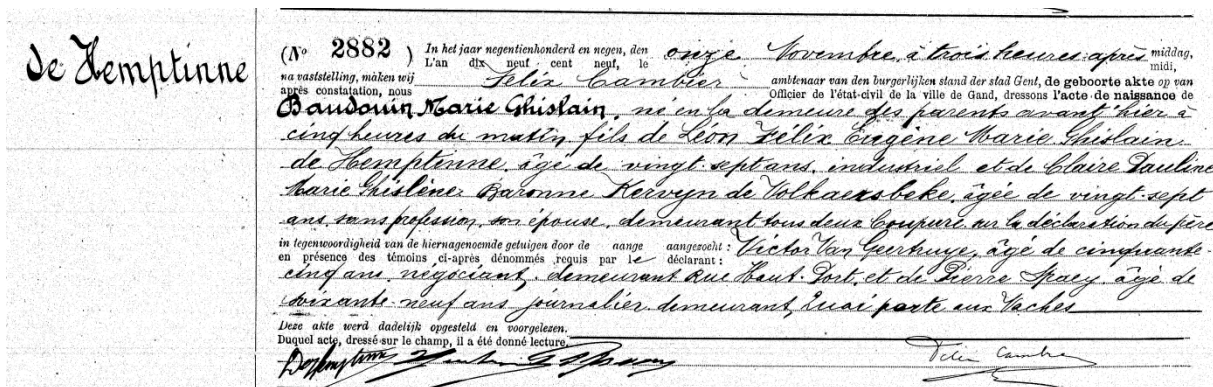 de Hemptinne
(No 2882) In het jaar negentienhonderd en negen, den onze Novembre, à trois heures après middag,
L'an dix neuf cent neuf, le midi,
na vaststelling, maken wij Felix Cambier ambtenaar van den burgerlijken stand der stad Gent, de geboorte akte op van
après constatation, nous Officier de l'état-civil de la ville de Gand, dressons l'acte de naissance de
Baudouin Marie Ghislain, né en la demeure des parents avant'hier à
cinq heures du matin, fils de Léon Félix Eugène Marie Ghislain
de Hemptinne, âgé de vingt-sept ans, industriel et de Claire Pauline
Marie Ghislène Baronne Kervyn de Volkaersbeke, âgée de vingt-sept
ans, sans profession, son épouse, demeurant tous deux Coupure sur la déclaration du père
in tegenwoordigheid van de hiernagenoemde getuigen door de aange aangezocht: Victor Van Geerthuye, âgé de cinquante-
en présence des témoins ci-après dénommés requis par le déclarant:
cinq ans, négociant, demeurant Rue Haut-Port, et de Pierre Spaey âgé de
soixante-neuf ans, journalier demeurant, Quai porte aux Vaches
Deze akte werd dadelijk opgesteld en voorgelezen.
Duquel acte, dressé sur le champ, il a été donné lecture.
Felix Cambier